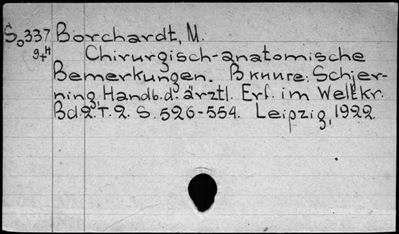 So337 Borchardt, M.
9+H Chirurgisch-anatomische
Bemerkungen. В книге: Schjer-
ning, Handb. d. ärztl. Erf. im Weltkr.
Bd. 2. T. 2. S. 526-554. Leipzig, 1922.